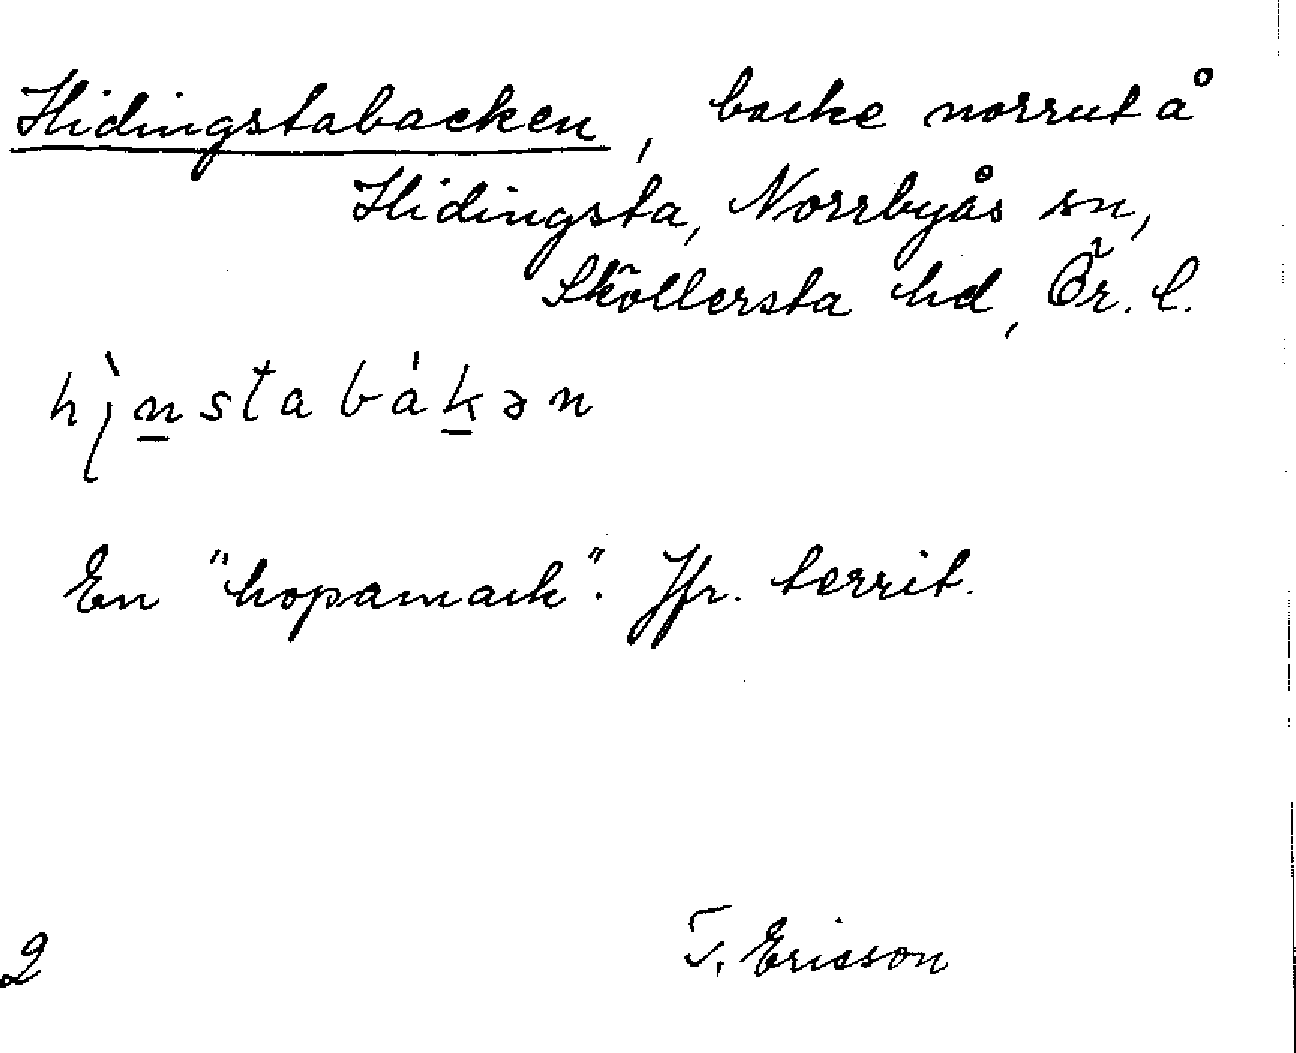 Hidingstabacken, backe norrut å
Hidingsta, Norrbyås sn,
Sköllersta hd, Ör. l.
En "hopamark". Jfr. territ.
2 T. Ericson